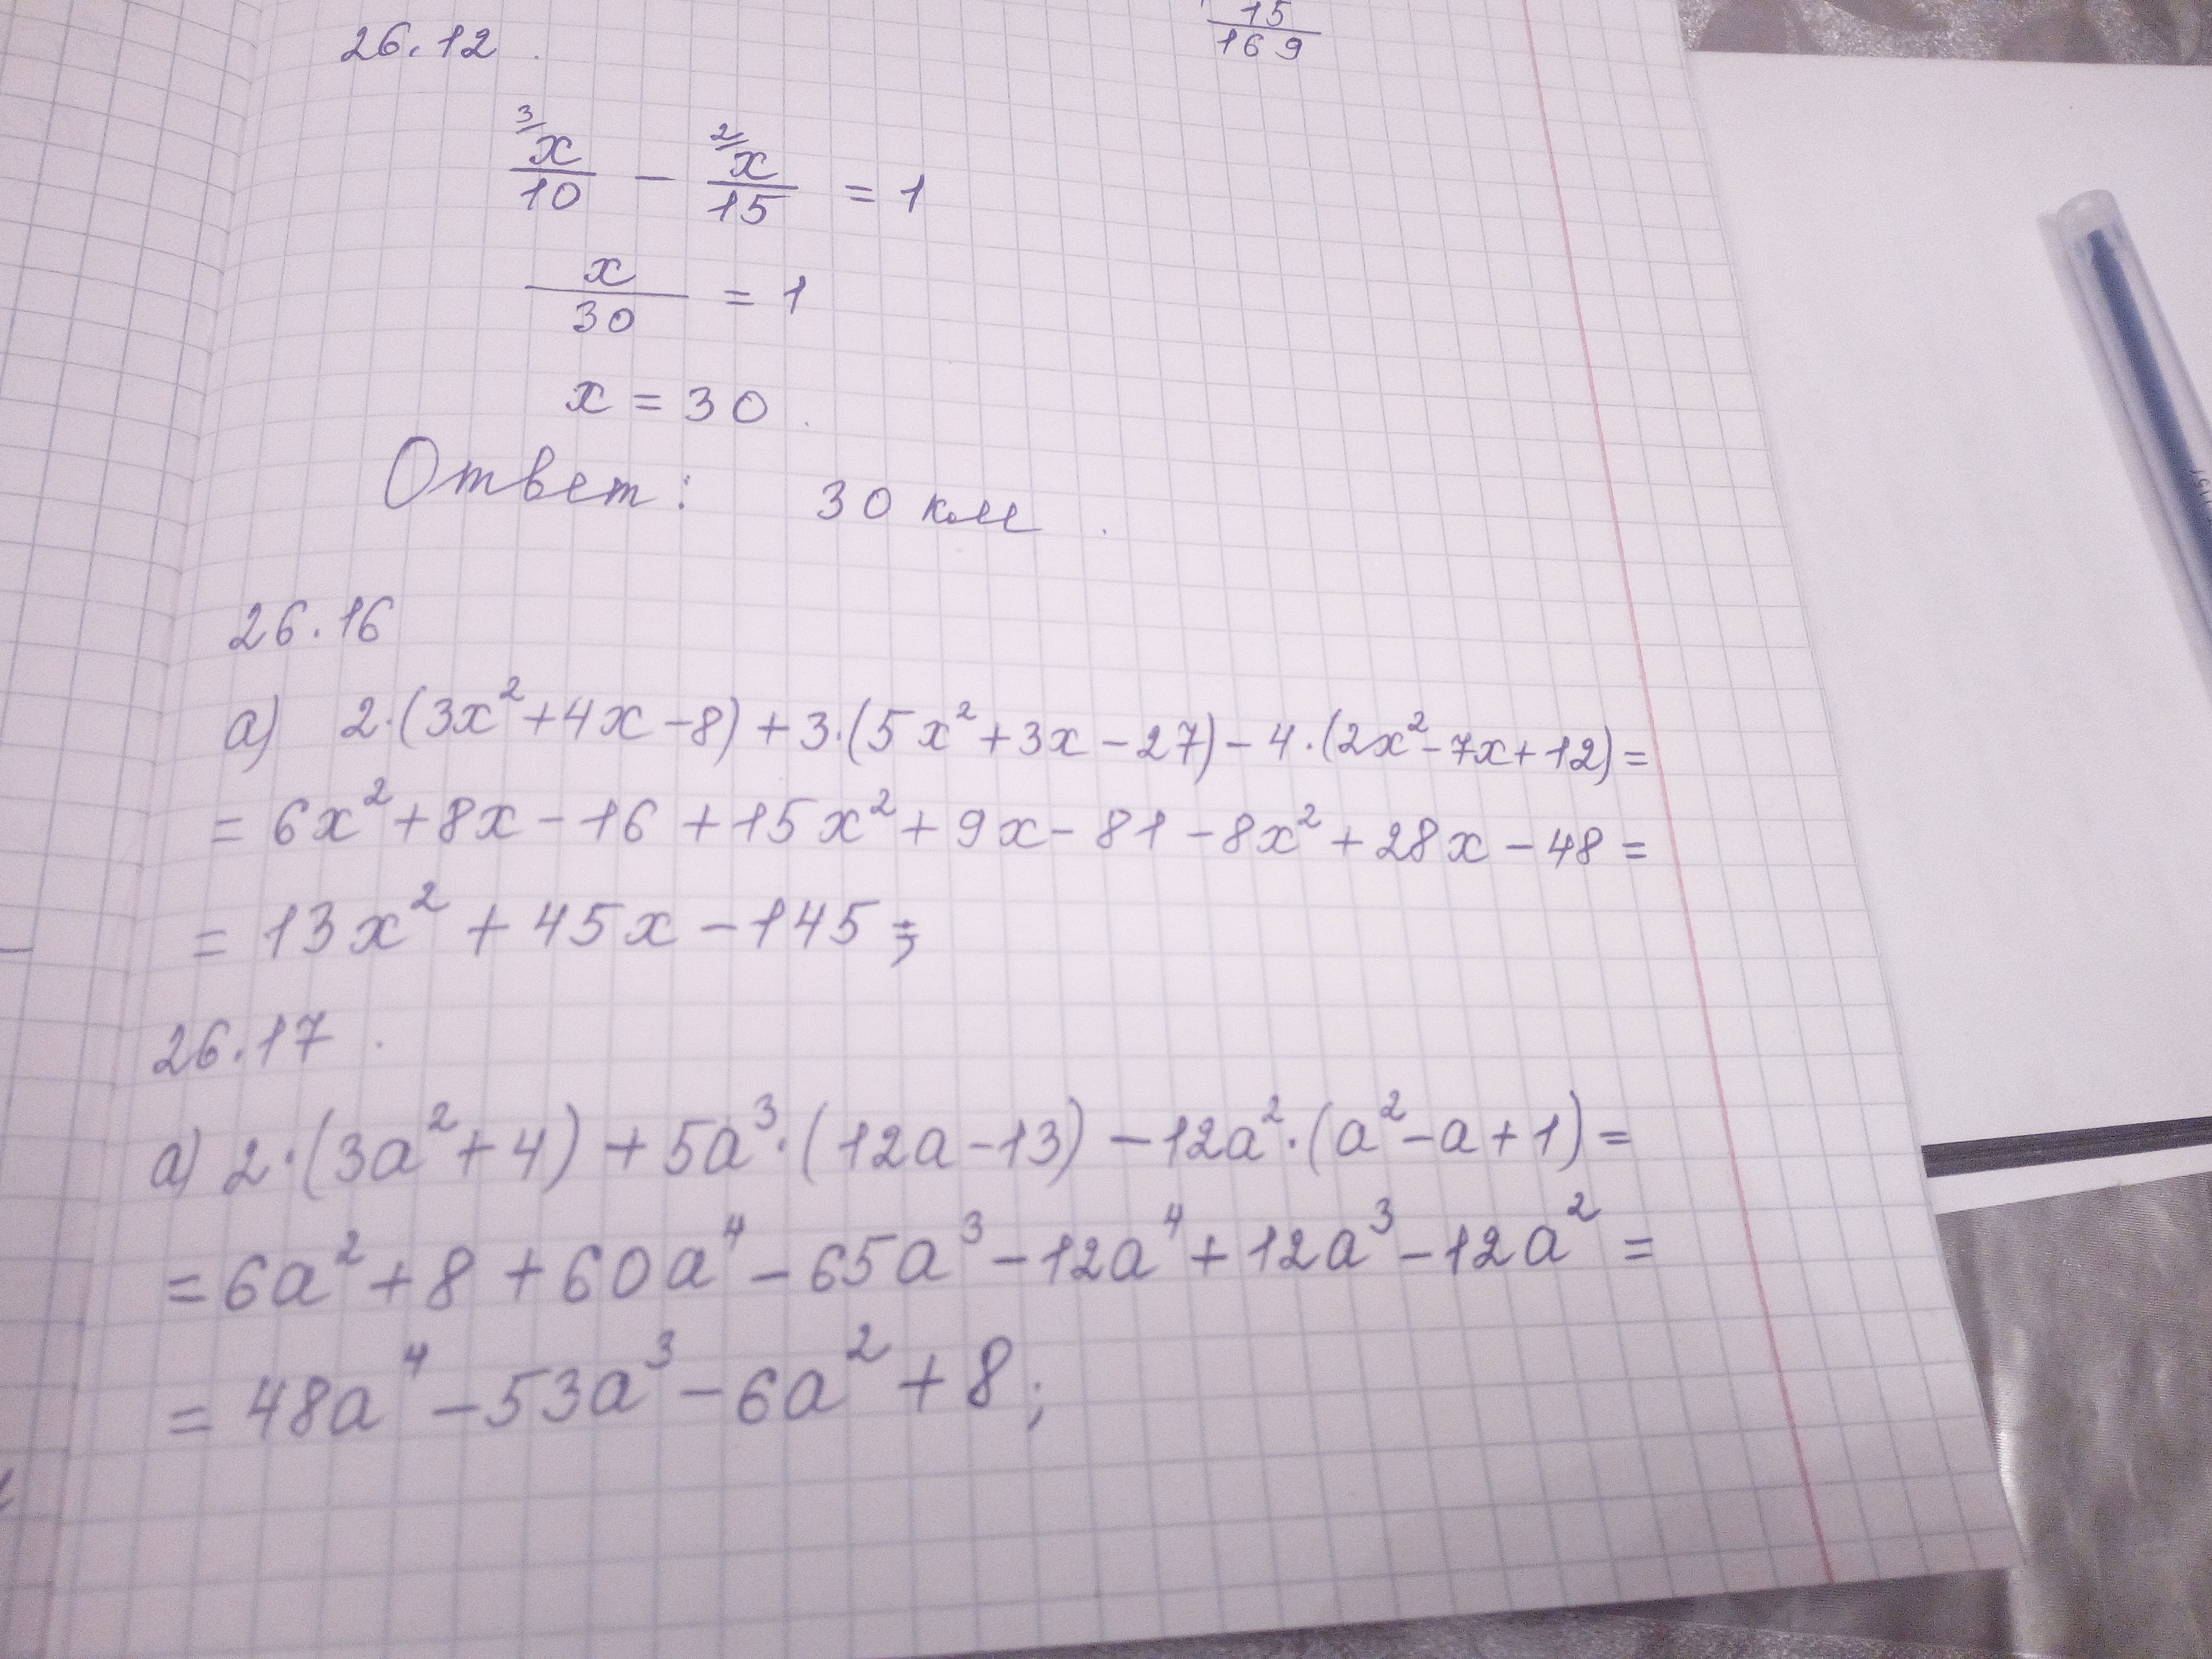 15/169
26.12.
3/ x/10 - 2/ x/15 = 1
x/30 = 1
x = 30.
Ответ: 30 км.
26.16
а) 2·(3x²+4x-8)+3·(5x²+3x-27)-4·(2x²-7x+12)=
= 6x²+8x-16+15x²+9x-81-8x²+28x-48=
= 13x²+45x-145;
26.17.
а) 2·(3a²+4)+5a³·(12a-13)-12a²·(a²-a+1)=
=6a²+8+60a⁴-65a³-12a⁴+12a³-12a²=
=48a⁴-53a³-6a²+8;